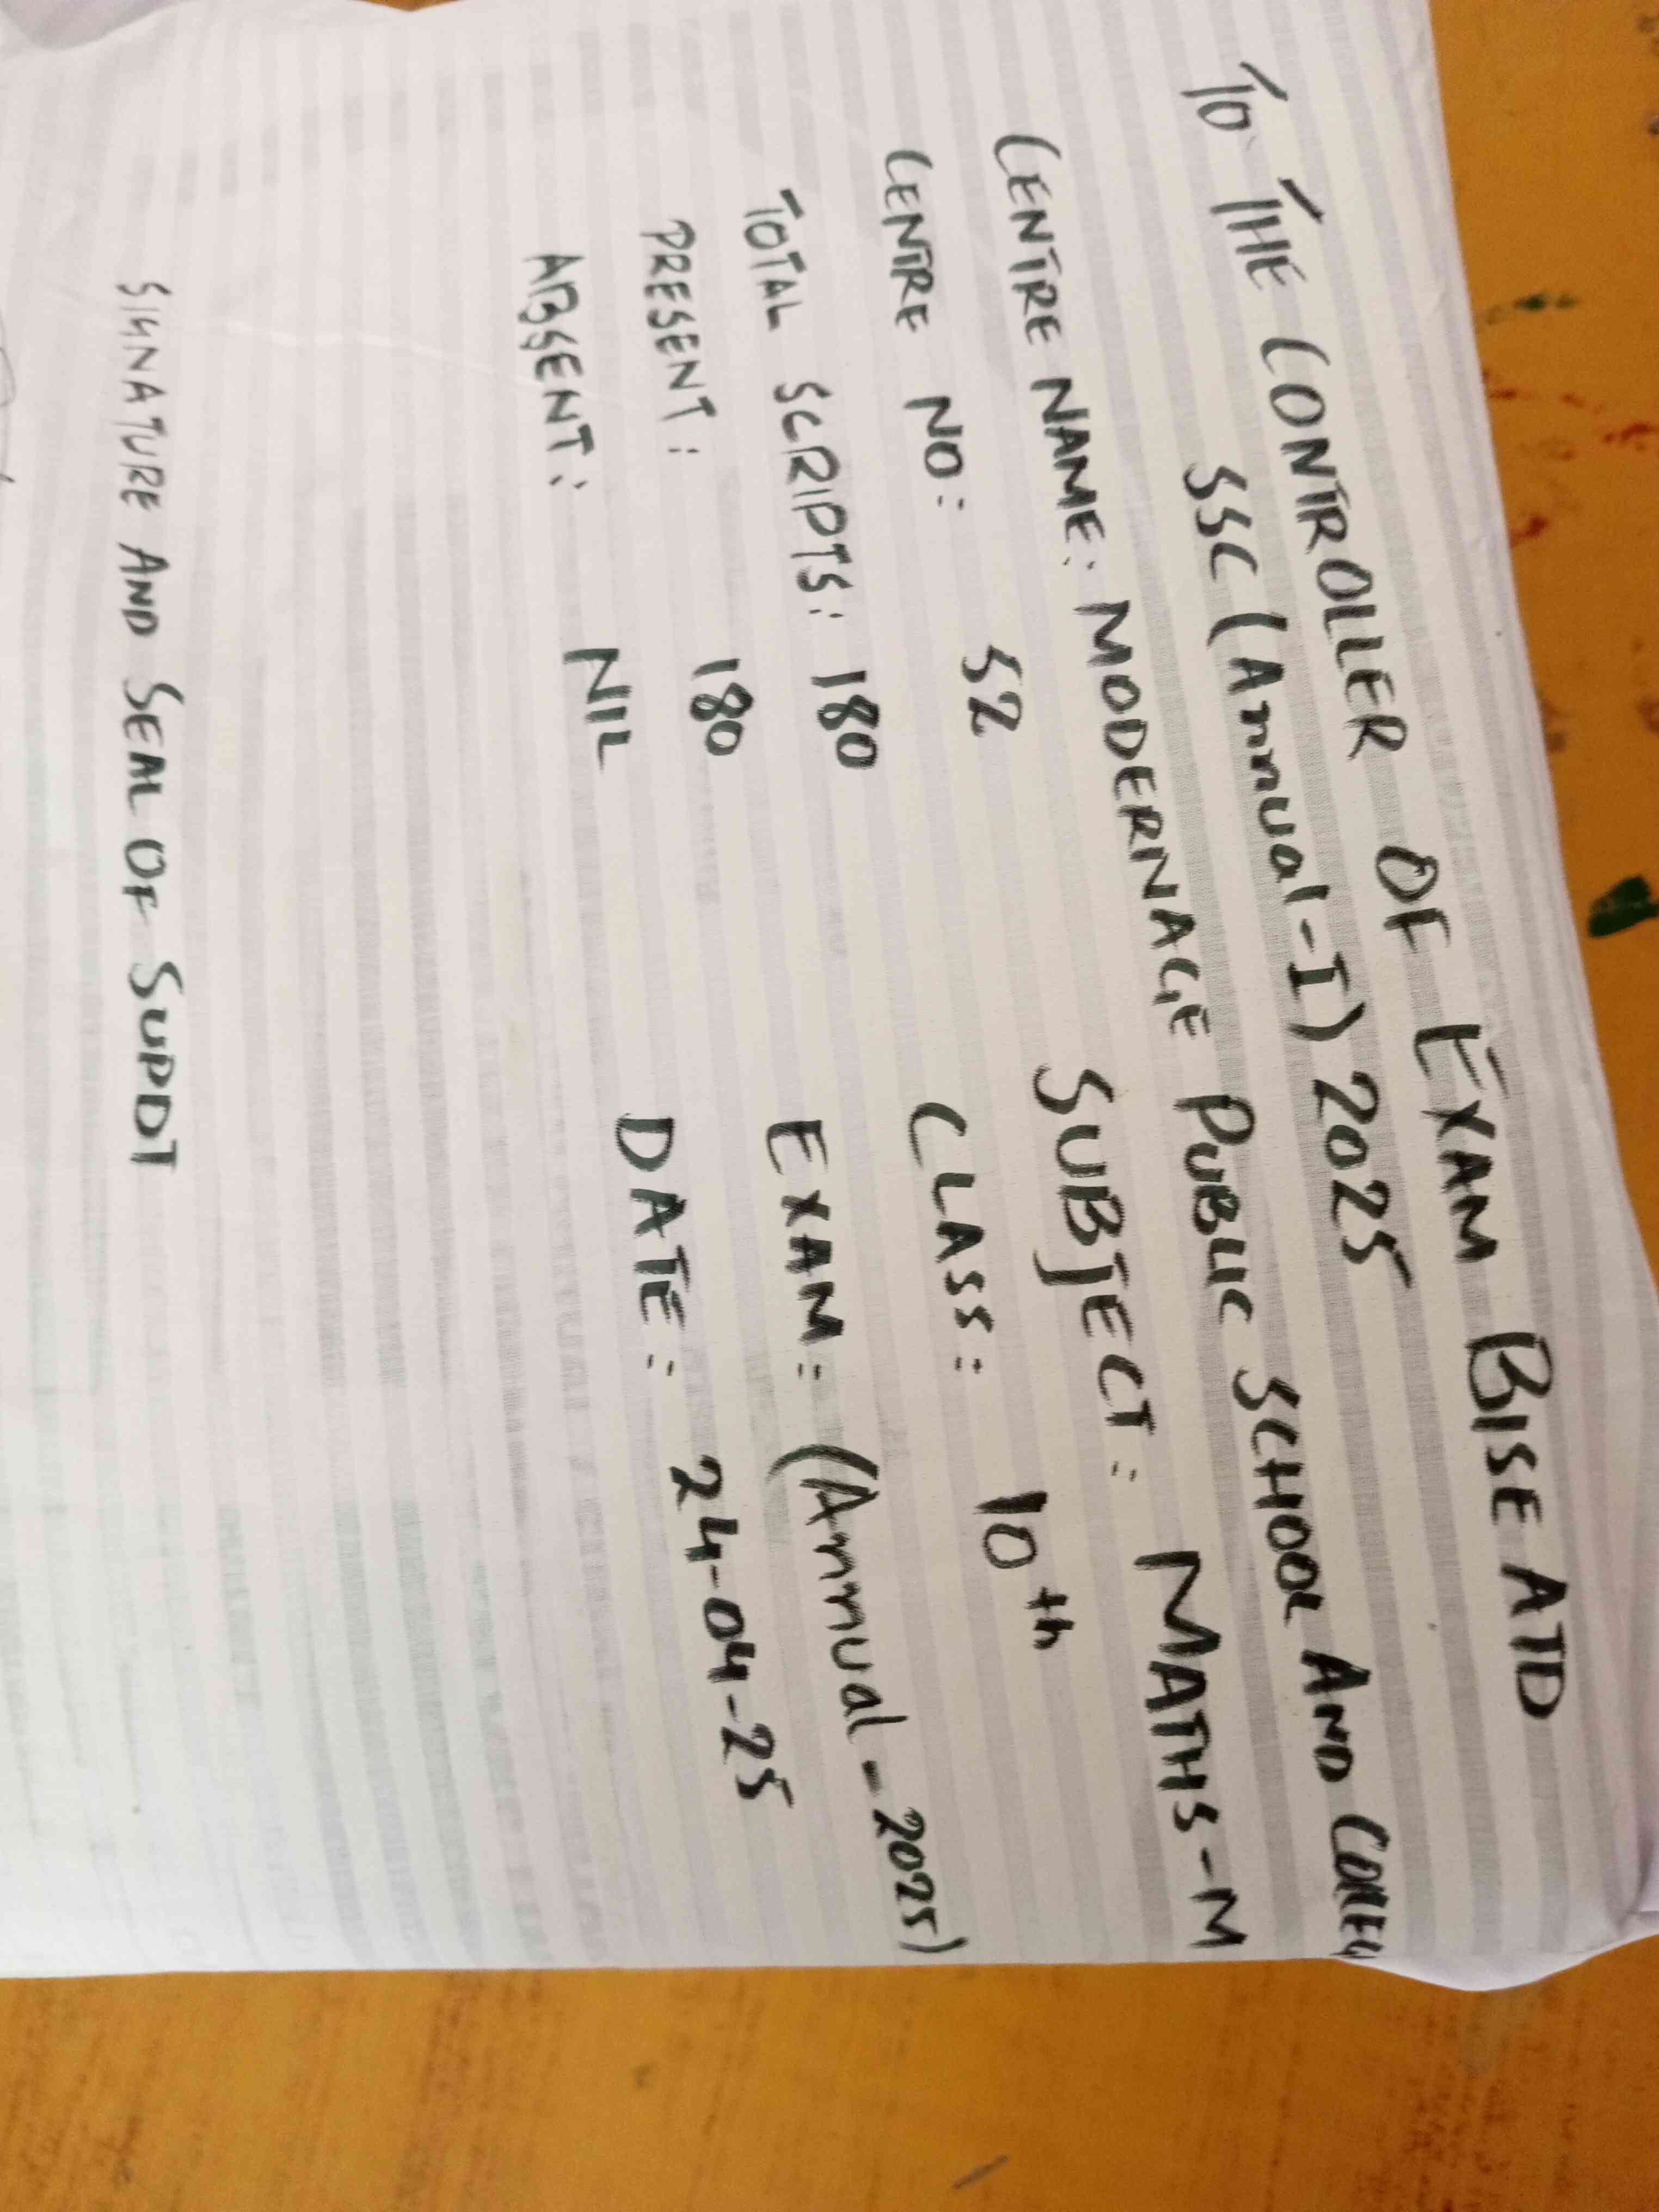 TO THE CONTROLLER OF EXAM BISE ATD
SSC (Annual-I) 2025
CENTRE NAME: MODERNAGE PUBLIC SCHOOL AND
SUBJECT: MATHS-M
CENTRE NO: 52
CLASS: 10th
TOTAL SCRIPTS: 180
EXAM: (Annual-2025)
PRESENT: 180
DATE: 24-04-25
ABSENT: NIL
SIGNATURE AND SEAL OF SUPDT